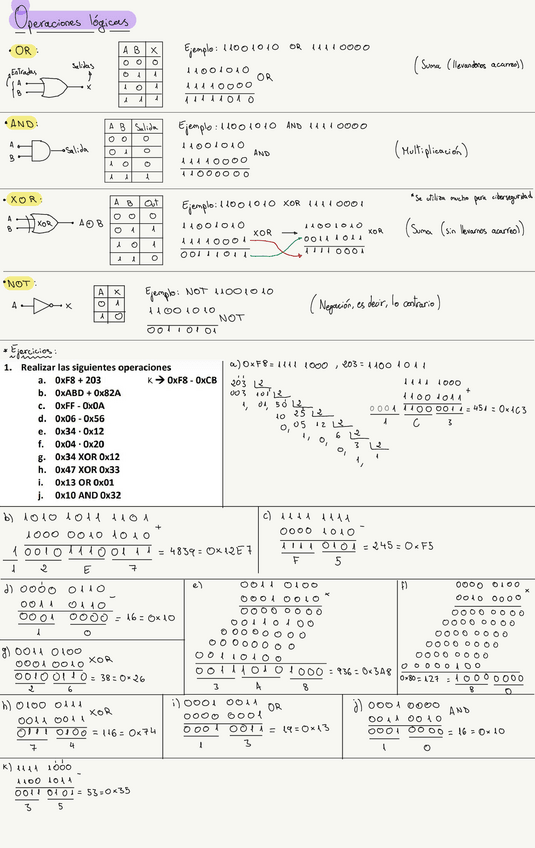 Operaciones lógicas
• OR:
Entradas
Salidas
A
B
X
A B X
0 0 0
0 1 1
1 0 1
1 1 1
Ejemplo: 11001010 OR 11110000
11001010
OR
11110000
11111010
(Suma (llevándonos acarreo))
• AND:
A
B
Salida
A B Salida
0 0 0
0 1 0
1 0 0
1 1 1
Ejemplo: 11001010 AND 11110000
11001010
AND
11110000
11000000
(Multiplicación)
• XOR:
A
B
XOR
A ⊕ B
A B Out
0 0 0
0 1 1
1 0 1
1 1 0
Ejemplo: 11001010 XOR 11110001
11001010
XOR
11110001
00111011
11001010
XOR
00111011
11110001
*Se utiliza mucho para ciberseguridad
(Suma (sin llevarnos acarreo))
• NOT:
A
X
A X
0 1
1 0
Ejemplo: NOT 11001010
11001010
NOT
00110101
(Negación, es decir, lo contrario)
* Ejercicios:
1. Realizar las siguientes operaciones
a. 0xF8 + 203
K → 0xF8 - 0xCB
b. 0xABD + 0x82A
c. 0xFF - 0x0A
d. 0x06 - 0x56
e. 0x34 · 0x12
f. 0x04 · 0x20
g. 0x34 XOR 0x12
h. 0x47 XOR 0x33
i. 0x13 OR 0x01
j. 0x10 AND 0x32
a) 0xF8 = 1111 1000 , 203 = 1100 1011
1111 1000
+
1100 1011
0001 1100 0011 = 451 = 0x1C3
1 C 3
b) 1010 1011 1101
+
1000 0010 1010
1 0010 1110 0111 = 4839 = 0x12E7
1 2 E 7
c) 1111 1111
-
0000 1010
1111 0101 = 245 = 0xF5
F 5
d) 0000 0110
-
0011 0110
0001 0000 = 16 = 0x10
1 0
e) 0011 0100
x
0001 0010
0011 1010 1000 = 936 = 0x3A8
3 A 8
f) 0000 0100
x
0010 0000
0x80 = 127 = 1000 0000
8 0
g) 0011 0100
XOR
0001 0010
0010 0110 = 38 = 0x26
2 6
h) 0100 0111
XOR
0011 0011
0111 0100 = 116 = 0x74
7 4
i) 0001 0011
OR
0000 0001
0001 0011 = 19 = 0x13
1 3
j) 0001 0000
AND
0011 0010
0001 0000 = 16 = 0x10
1 0
K) 1111 1000
-
1100 1011
0011 0101 = 53 = 0x35
3 5